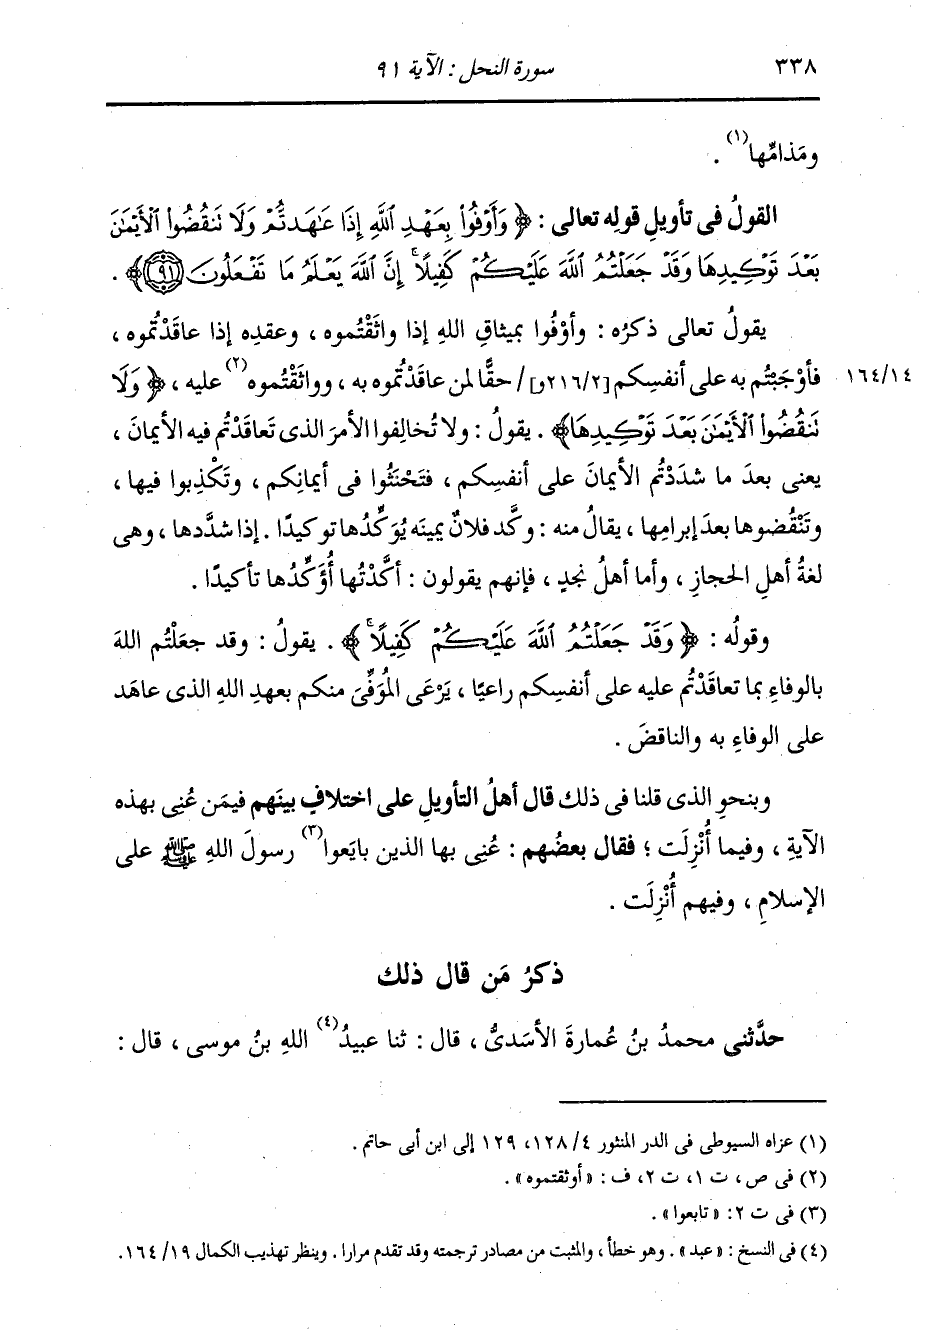 ٣٣٨ سورة النحل : الآية ٩١
ومَذامِّها(١) .
القولُ فى تأويلِ قوله تعالى : ﴿ وَأَوْفُوا۟ بِعَهْدِ ٱللَّهِ إِذَا عَـٰهَدتُّمْ وَلَا نَنقُضُوا۟ ٱلْأَيْمَـٰنَ
بَعْدَ تَوْكِيدِهَا وَقَدْ جَعَلْتُمُ ٱللَّهَ عَلَيْكُمْ كَفِيلًا ۚ إِنَّ ٱللَّهَ يَعْلَمُ مَا تَفْعَلُونَ ٩١﴾ .
يقولُ تعالى ذكرُه : وأوْفُوا بميثاقِ اللهِ إذا واثَقْتُموه ، وعقدِه إذا عاقَدْتُموه ،
١٦٤/١٤ فأوْجَبْتُم به على أنفسِكم [٢١٦/٢و] / حقًّا لمن عاقَدْتُموه به ، وواثَقْتُموه(٢) عليه ، ﴿ وَلَا
نَنقُضُوا۟ ٱلْأَيْمَـٰنَ بَعْدَ تَوْكِيدِهَا﴾ . يقولُ : ولا تُخالِفوا الأمرَ الذى تَعاقَدْتُم فيه الأيمانَ ،
يعنى بعدَ ما شدَدْتُم الأيمانَ على أنفسِكم ، فتَحْنَثُوا فى أيمانِكم ، وتَكْذِبوا فيها ،
وتَنْقُضوها بعدَ إبرامِها ، يقالُ منه : وكَّد فلانٌ يمينَه يُوَكِّدُها توكيدًا . إذا شدَّدها ، وهى
لغةُ أهلِ الحجازِ ، وأما أهلُ نجدٍ ، فإنهم يقولون : أكَّدْتُها أُؤَكِّدُها تأكيدًا .
وقولُه : ﴿ وَقَدْ جَعَلْتُمُ ٱللَّهَ عَلَيْكُمْ كَفِيلًا ۚ﴾ . يقولُ : وقد جعَلْتُم اللهَ
بالوفاءِ بما تعاقَدْتُم عليه على أنفسِكم راعيًا ، يَرْعَى المُوَفِّىَ منكم بعهدِ اللهِ الذى عاهَد
على الوفاءِ به والناقضَ .
وبنحوِ الذى قلنا فى ذلك قال أهلُ التأويلِ على اختلافٍ بينَهم فيمَن عُنِى بهذه
الآيةِ ، وفيما أُنْزِلَت ؛ فقال بعضُهم : عُنِى بها الذين بايَعوا(٣) رسولَ اللهِ ﷺ على
الإسلامِ ، وفيهم أُنْزِلَت .
ذكرُ مَن قال ذلك
حدَّثنى محمدُ بنُ عُمارةَ الأسَدىُّ ، قال : ثنا عبيدُ(٤) اللهِ بنُ موسى ، قال :
(١) عزاه السيوطى فى الدر المنثور ١٢٨/٤، ١٢٩ إلى ابن أبى حاتم .
(٢) فى ص، ت ١، ت ٢، ف : «أوثقتموه» .
(٣) فى ت ٢: «تابعوا» .
(٤) فى النسخ : «عبد» . وهو خطأ ، والمثبت من مصادر ترجمته وقد تقدم مرارا . وينظر تهذيب الكمال ١٦٤/١٩.